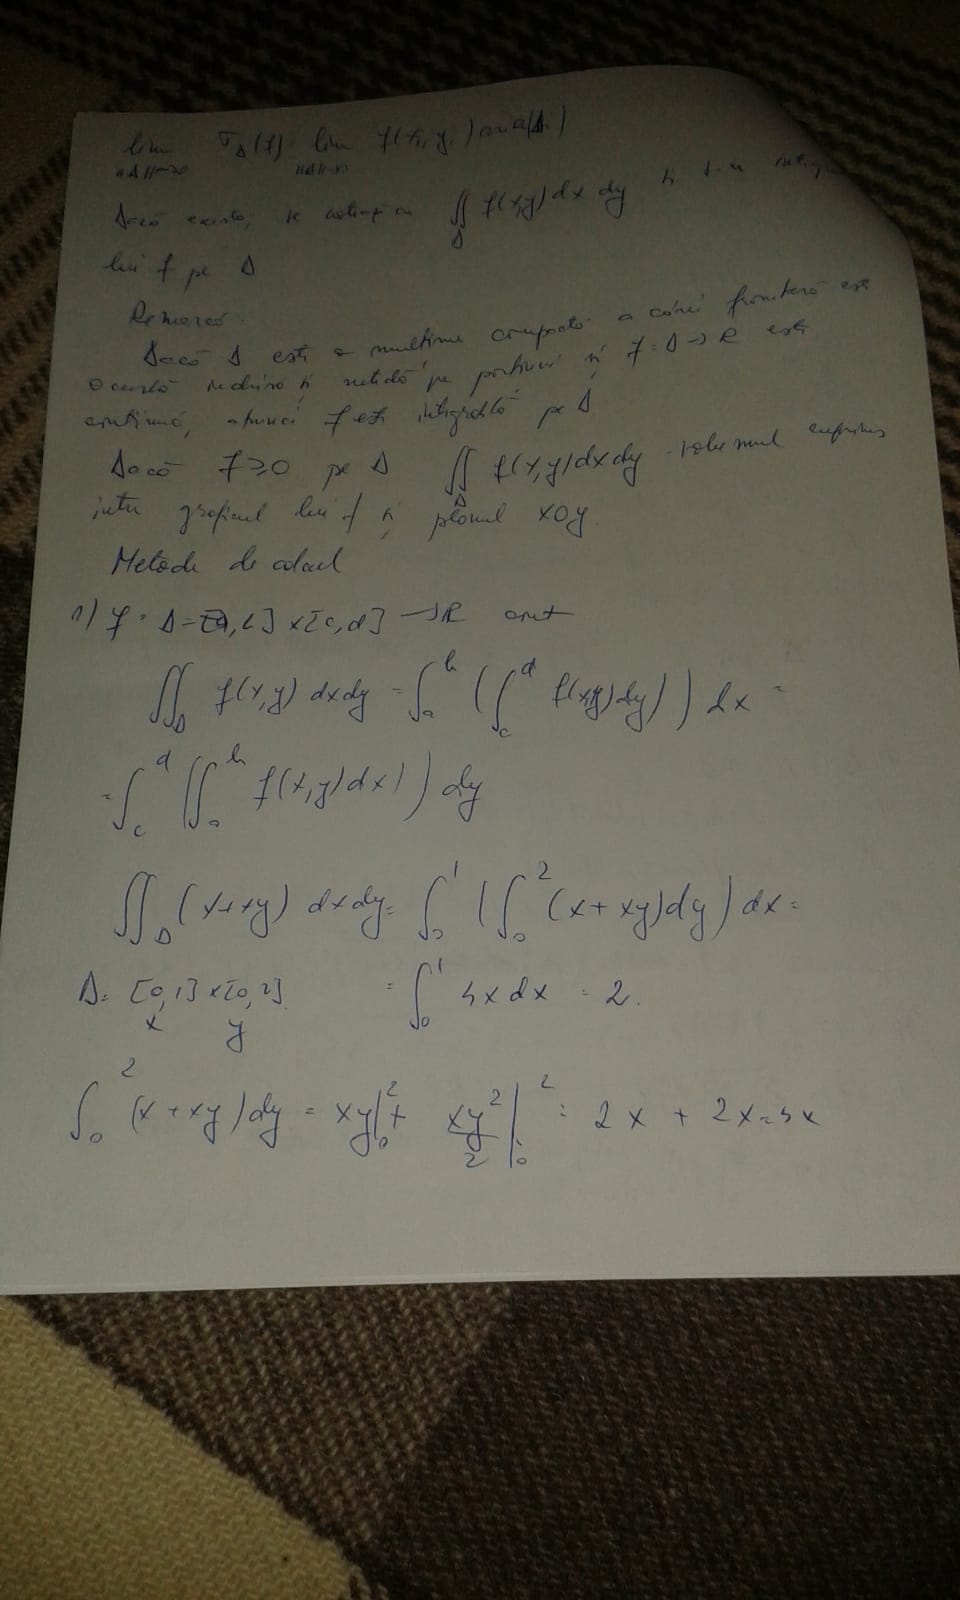 lim σ_Δ(f) = lim f(xi, yi) aria(Δi)
||Δ||→0 ||Δ||→0
Dacă există, se notează cu ∬_D f(x,y) dx dy și s.n.
lui f pe D
Remarcă
Dacă D este o mulțime compactă a cărei frontieră este
o curbă închisă și netedă pe porțiuni și f: D → R este
continuă, atunci f este integrabilă pe D
Dacă f ≥ 0 pe D ∬_D f(x,y) dx dy - volumul cuprins
între graficul lui f și planul xOy.
Metode de calcul
1) f: D = [a, b] x [c, d] → R cont
∬_D f(x,y) dxdy = ∫_a^b (∫_c^d f(x,y) dy)) dx =
= ∫_c^d (∫_a^b f(x,y) dx)) dy
∬_D (x+xy) dxdy = ∫_0^1 (∫_0^2 (x+xy)dy) dx =
D = [0,1] x [0,2] = ∫_0^1 4x dx = 2.
x y
∫_0^2 (x+xy)dy = xy|_0^2 + xy^2/2 |_0^2 = 2x + 2x = 4x